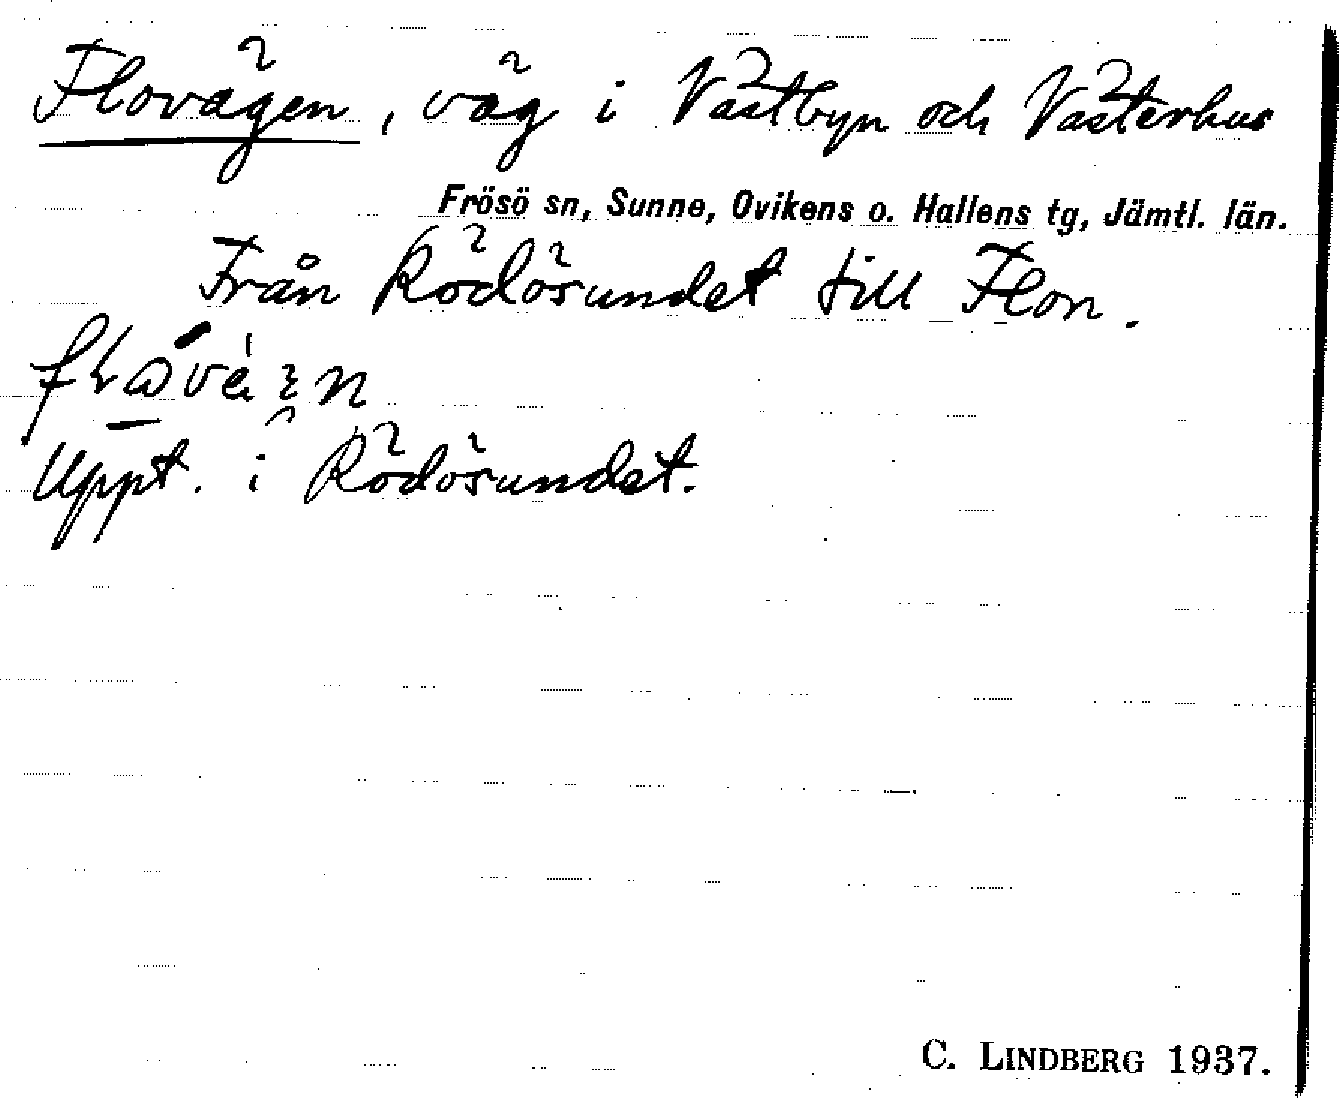 Flovägen, väg i Västbyn och Västerhus
Frösö sn, Sunne, Ovikens o. Hallens tg, Jämtl. län.
Från Rödösundet till Flon.
Uppt. i Rödösundet.
C. LINDBERG 1937.